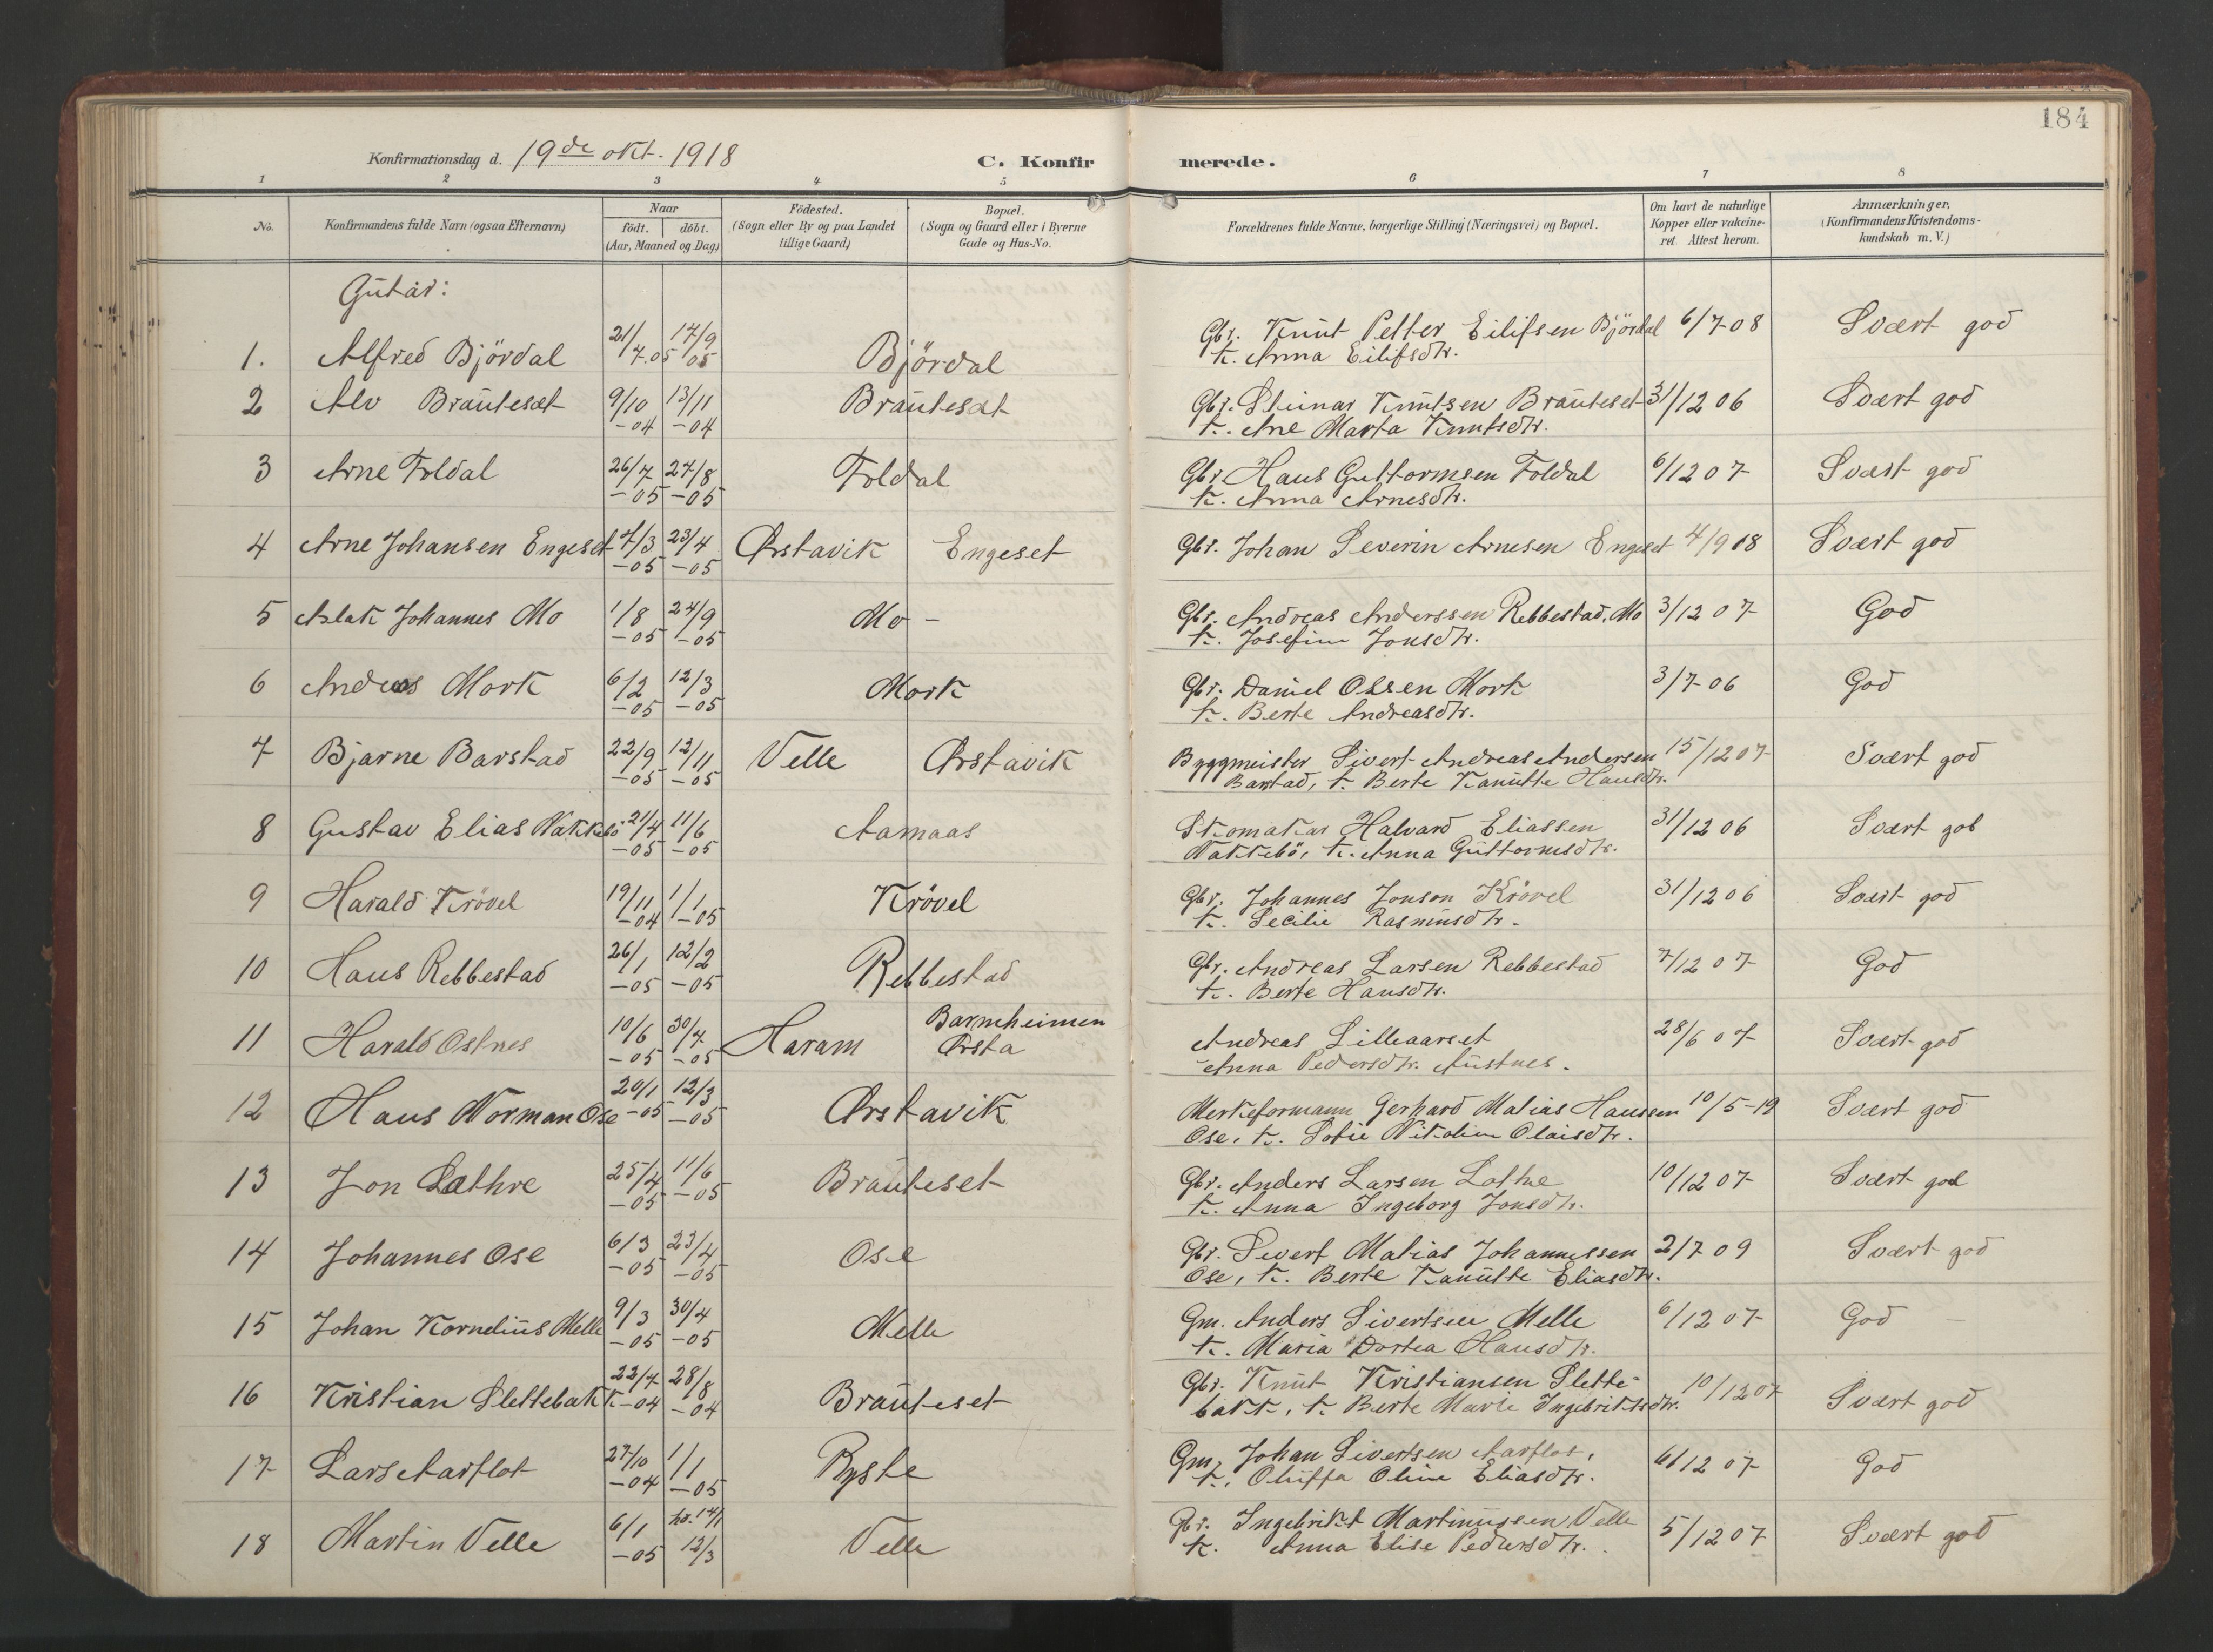 184
Konfirmationsdag d. 19de okt. 1918
C. Konfirmerede.
1 2 3 4 5 6 7 8
No.
Konfirmandens fulde Navn (ogsaa Efternavn)
Naar
födt. döbt.
(Aar, Maaned og Dag)
Födested.
(Sogn eller By og paa Landet
tillige Gaard)
Bopæl.
(Sogn og Gaard eller i Byerne
Gade og Hus-No.
Forældrenes fulde Navne, borgerlige Stilling (Næringsvei) og Bopæl.
Om havt de naturlige
Kopper eller vakcine-
ret. Attest herom.
Anmærkninger,
(Konfirmandens Kristendoms-
kundskab m. V.)
Gutar:
1. Alfred Björdal 21/7.05 17/9 05 Björdal Gbr. Knut Petter Eilifsen Björdal 6/7-08 Svært god
k. Anna Eilifsdtr.
2 Alv Brauteset 9/10 -04 13/11 -04 Brauteset Gbr. Steinar Knutsen Brauteset 31/12 06 Svært god
k. Ane Marta Knutsdtr.
3 Arne Foldal 26/7 -05 27/8 -05 Foldal Gbr. Hans Guttormsen Foldal 6/12 07 Svært god
k. Anna Arnesdtr.
4 Arne Johansen Engeset 7/3 -05 23/4 -05 Ørstavik Engeset Gbr. Johan Severin Arnesen Engeset 4/9 18 Svært god
5 Aslak Johannes Mo 1/8 -05 24/9 -05 Mo - Gbr. Andreas Anderssen Rebbestad, Mo 3/12 07 God
k. Josefine Jonsdtr.
6 Andreas Mork 6/2 -05 12/3 -05 Mork Gbr. Daniel Olsen Mork 3/7-06 God
k. Berte Andreasdtr.
7 Bjarne Barstad 22/9 -05 12/11 -05 Velle Ørstavik Byggmeister Sivert Andreas Andersen 15/12 07 Svært god
Barstad, k. Berte Kanutte Hansdtr.
8 Gustav Elias Nakkebö 21/4 -05 11/6 -05 Aamaas Skomakar Halvard Eliassen 31/12 06 Svært god
Nakkebö, k. Anna Guttormsdtr.
9 Harald Krövel 19/11 -04 1/1 -05 Krövel Gbr. Johannes Jonson Krövel 31/12 06 Svært god
k. Secilie Rasmusdtr.
10 Hans Rebbestad 26/1 -05 12/2 -05 Rebbestad Gbr. Andreas Larsen Rebbestad 7/12 07 God
k. Berte Hansdtr.
11 Harald Ostnes 10/6 -05 30/7 -05 Haram Barnheimen Ørsta Andreas Lilleaarset 28/6 07 Svært god
Anna Pedersdtr. Austnes.
12 Hans Norman Ose 20/1 -05 12/3 -05 Ørstavik Merkeformann Gerhard Matias Hanssen 10/5-19 Svært god
Ose, k. Sofie Nikoline Olaisdtr.
13 Jon Løthre 25/4 -05 11/6 -05 Brauteset Gbr. Anders Larsen Lothe 10/12 07 Svært god
k. Anna Ingeborg Jonsdtr.
14 Johannes Ose 6/3 -05 23/4 -05 Ose Gbr. Sivert Matias Johannessen 2/7 09 Svært god
Ose, k. Berte Kanutte Eliasdtr.
15 Johan Kornelius Melle 9/3 -05 30/4 -05 Melle Gm. Anders Sivertsen Melle 6/12 07 God -
k. Maria Dortea Hansdtr.
16 Kristian Slettebakk 22/7 -04 28/8 -04 Brauteset Gbr. Knut Kristiansen Slette- 10/12 07 Svært god
bakk, k. Berte Marie Ingebriktsdtr.
17 Lars Aarflot 27/10 -04 1/1 -05 Ryste Gm. Johan Sivertsen Aarflot, 6/12 07 God
k. Oluffa Oline Eliasdtr.
18 Martin Velle 6/1 -05 hd. 14/1 12/3 Velle Gbr. Ingebrikt Martinussen Velle 5/12 07 Svært god
k. Anna Elise Pedersdtr.